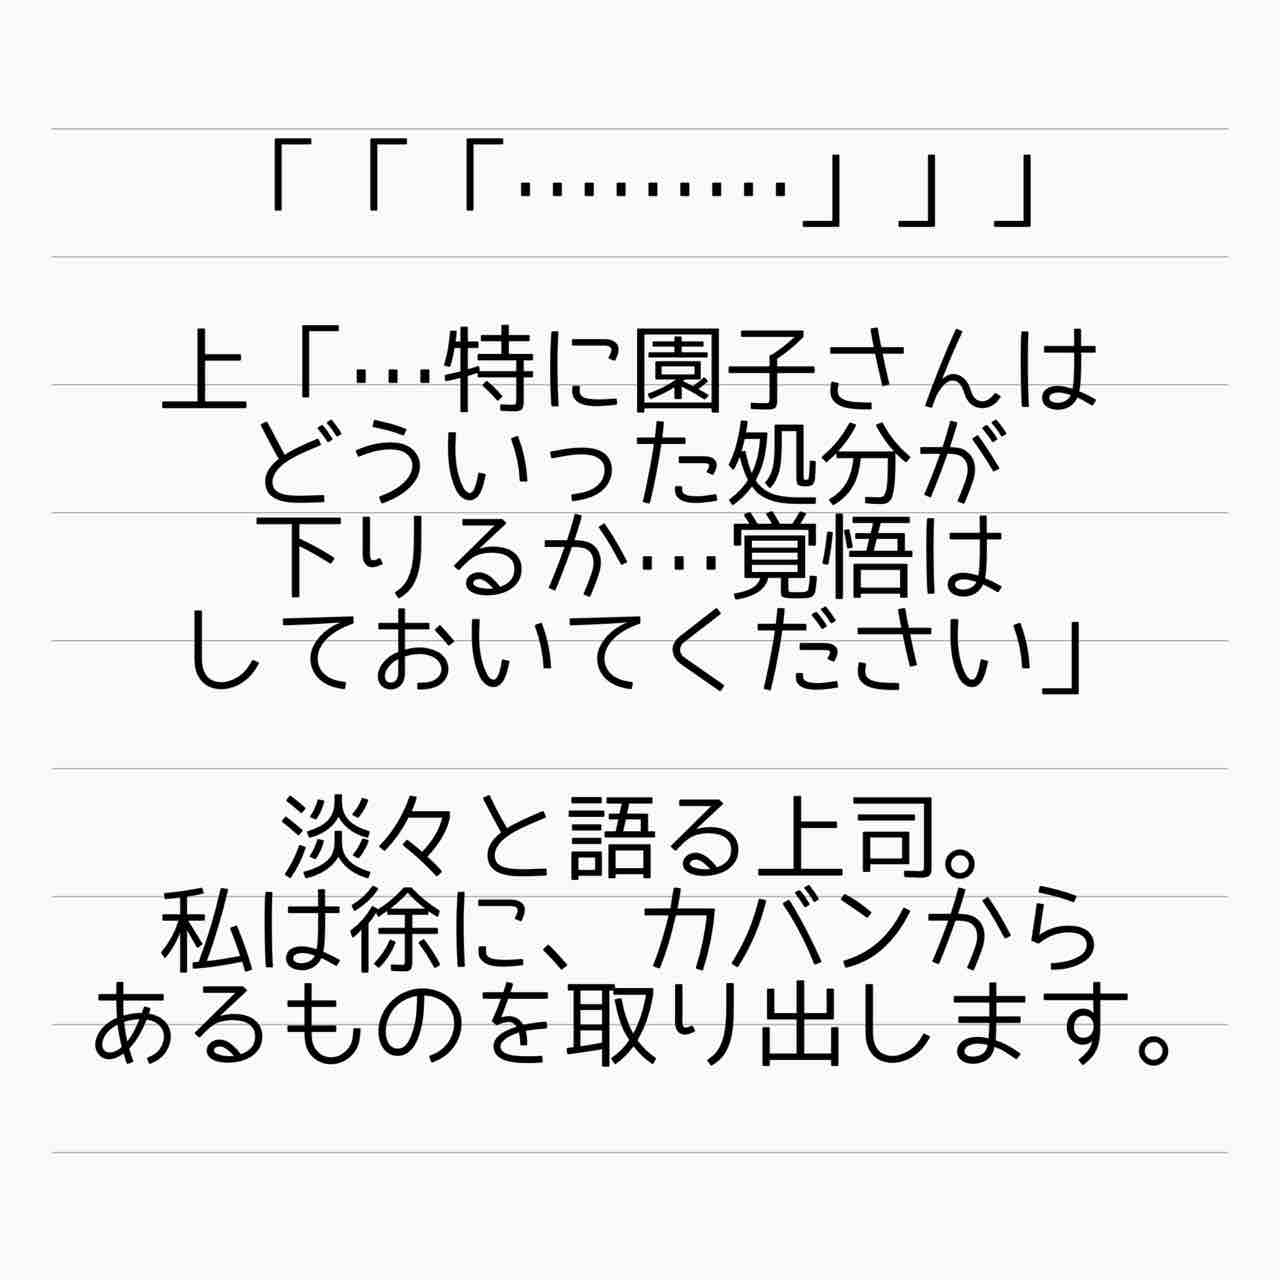 「「「………」」」
上「…特に園子さんは
どういった処分が
下りるか…覚悟は
しておいてください」
淡々と語る上司。
私は徐に、カバンから
あるものを取り出します。